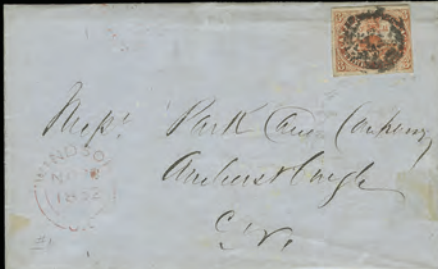 Messrs Park and Company
Amherstburgh
C.W.
WINDSOR
NO
1852
U.C.
3 3
3 3